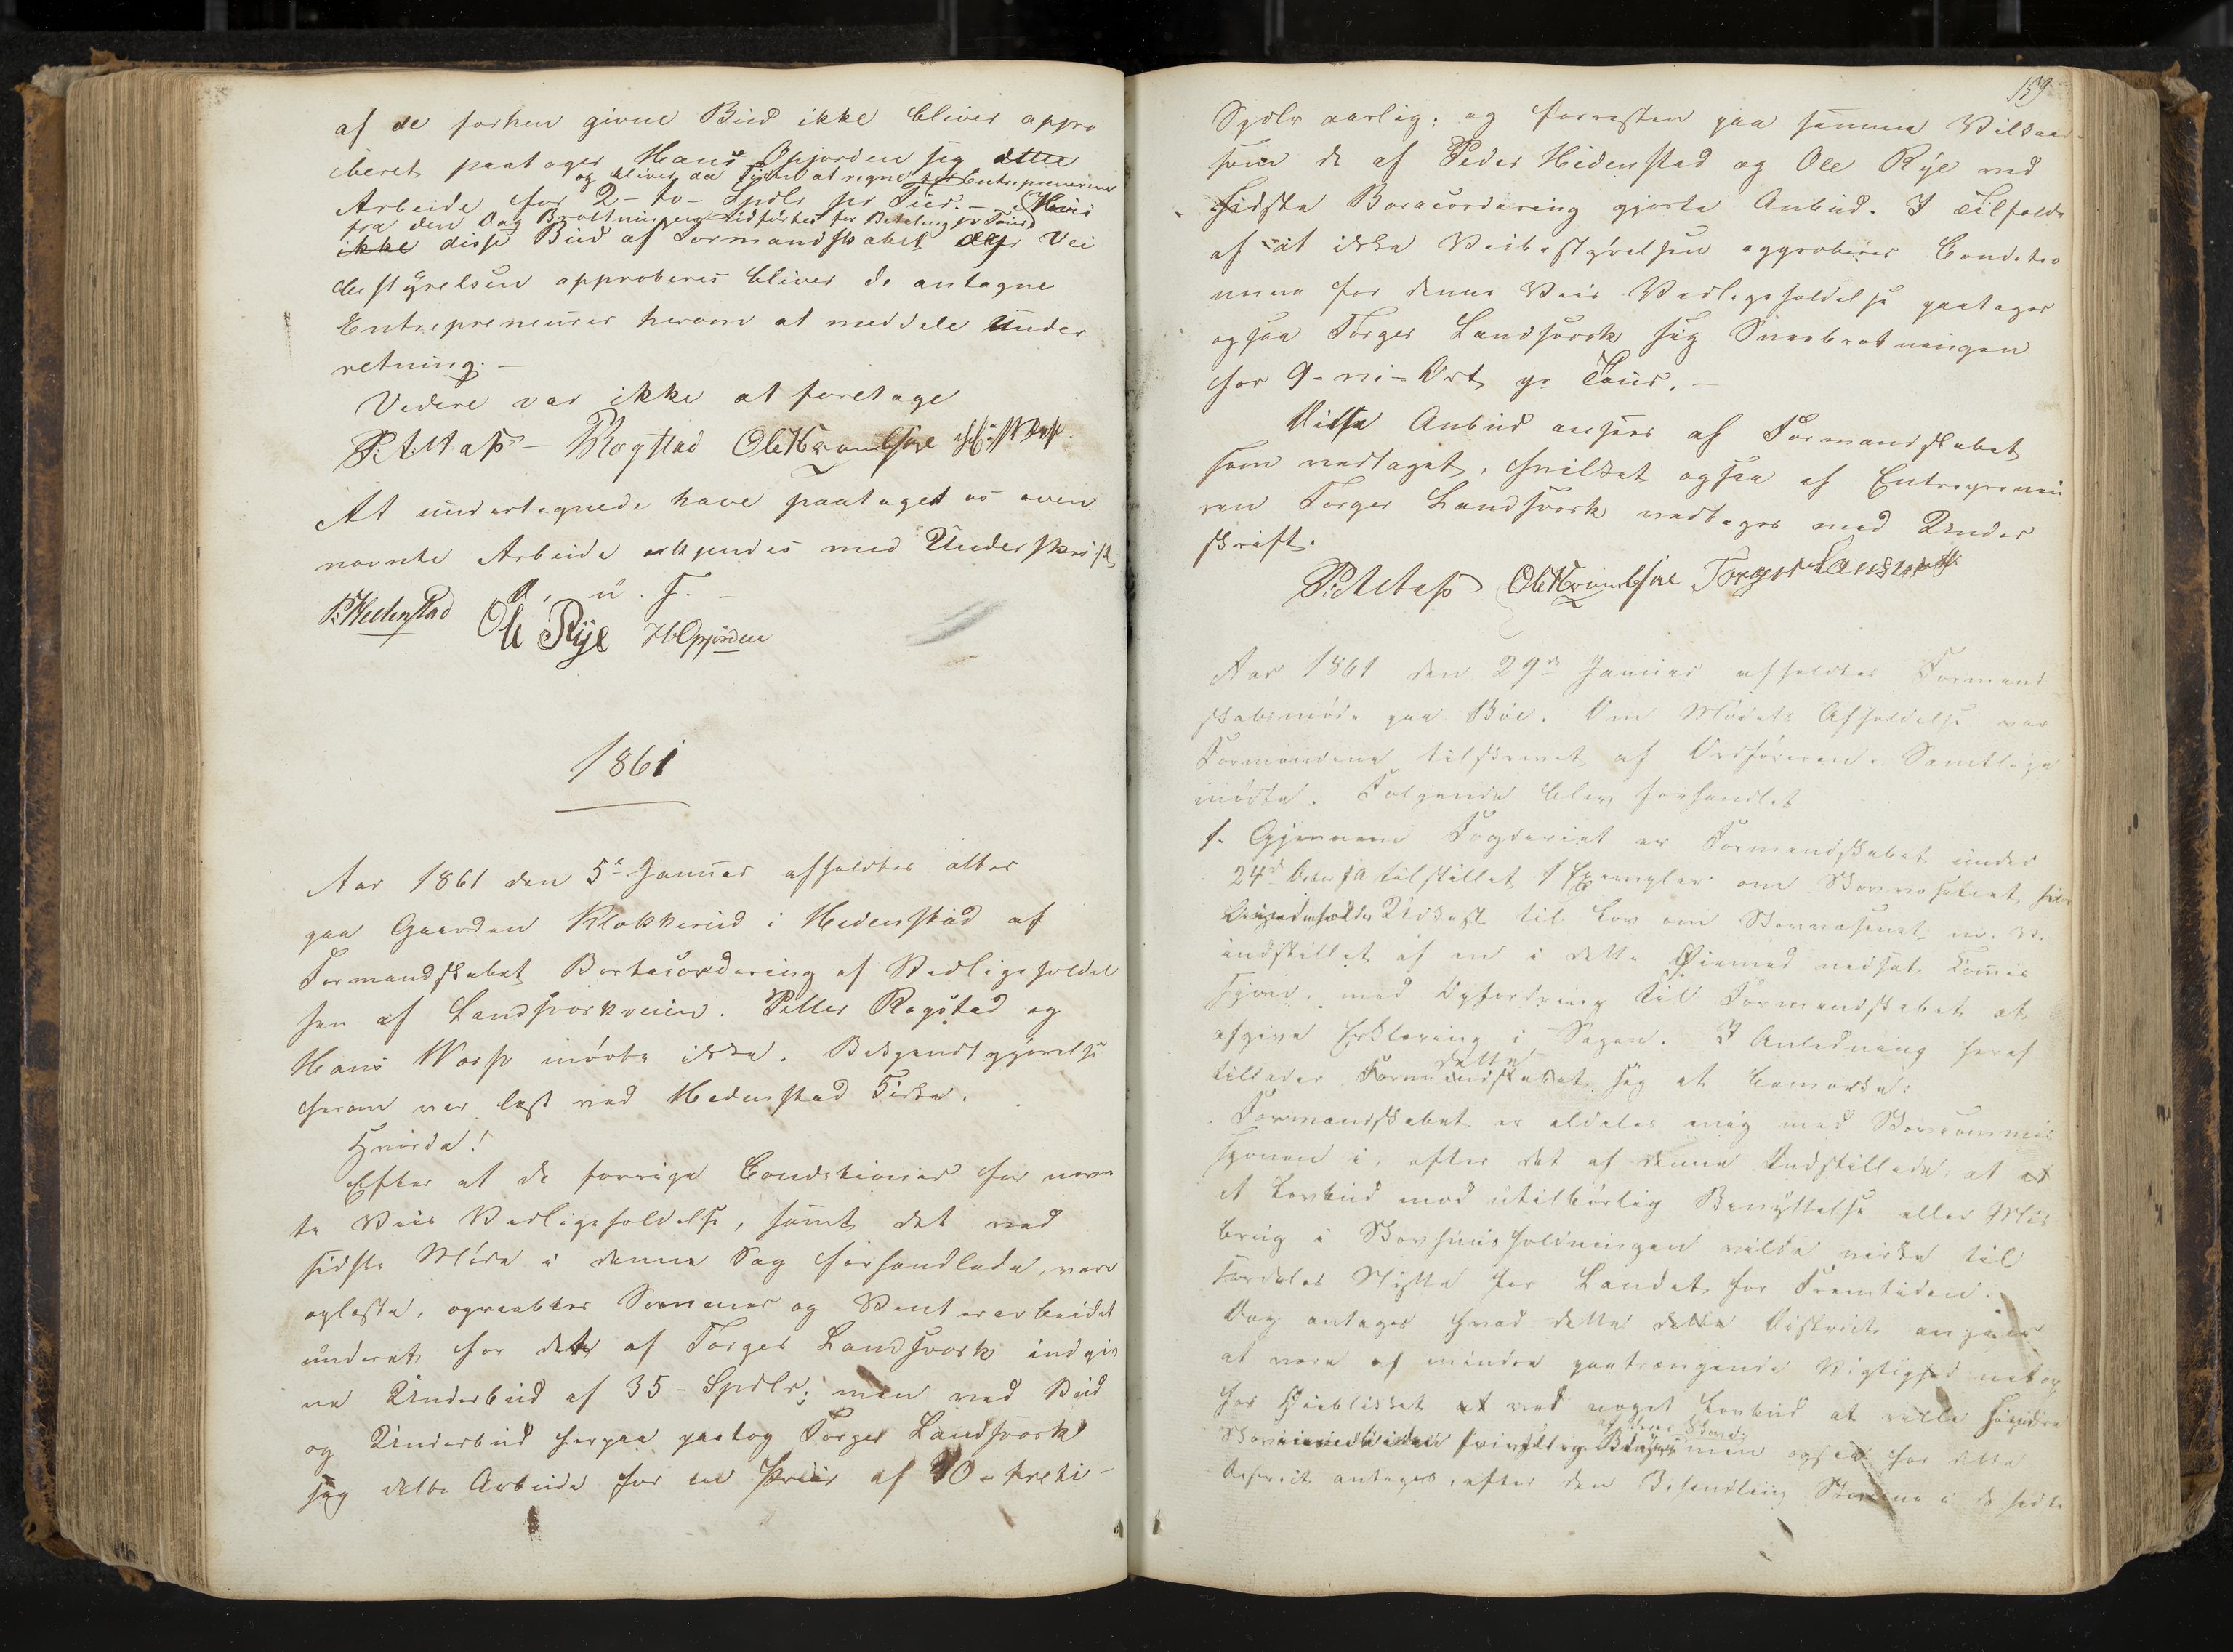 af de forhen givne Bud ikke bliver appro
beret paatager Hans Opjorden sig dette
og bliver da Tiden at regne for Entrepreneurerne
Arbeide for 2 - to - Spdlr pr Tuur. - Hvis
fra den Dag Brøitningen udføres for Betaling pr Tuur
ikke disse Bud af Formandskabet eller Vei
bestyrelsen approberes bliver de antagne
Entrepreneurer herom at meddele Under
retning. -
Videre var ikke at foretage
P: A: Maps - PRogstad Ole
At undertegnede have paataget os oven
nævnte Arbeide erkjendes med Underskrift
D. u. s. -
P: Hedenstad Ole Rye H Opjorden
1861
Aar 1861 den 5te Januar afholdtes atter
paa Gaarden Klokkerud i Hedenstad af
Formandskabet Bortacordering af Vedligeholdel
sen af Landsverkveien. Petter Rogstad og
Hans Worp mødte ikke. Bekjendtgjørelse
herom var læst ved Hedenstad Kirke.
Hvorda!
Efter at de forrige Conditioner for nævn
te Veis Vedligeholdelse, samt det ved
sidste Møde i denne Sag forhandlede, vare
oplæste, opraabtes Sommer og Vinterarbeidet
underet for det af Torger Landsverk indgiv
ne Underbud af 35 - Spdlr; men ved Bud
og Underbud herpaa paatog Torger Landsverk
sig dette Arbeide for en Priis af 30 - treti -
159
Spdlr aarlig; og forresten paa samme Vilkaar
som de af Peder Hedenstad og Ole Rye ved
sidste Boracordering gjorte Anbud. I Tilfælde
af at ikke Veibestyrelsen approberer Conditio
nerne for denne Veis Vedligeholdelse paatager
ogsaa Torger Landsverk sig Sneebrøtningen
for 9 - ni - Ort pr Tuur. -
Disse Anbud ansees af Formandskabet
som vedtaget, hvilket ogsaa af Entrepreneu
ren Torger Landsverk vedtages med Under
skrift.
P: A Maps Ole Torger Landsverk
Aar 1861 den 29de Januar afholdtes Formand
skabsmøde paa Bøe. Om Mødets Afholdelse var
Formændene tilskrevet af Ordføreren. Samtlige
mødte. Følgende blev forhandlet
1. Gjennem Fogderiet er Formandskabet under
24de tilstillet 1 Exemplar om Skovvæsenet,
Udkast til Lov om Skovvæsenet m. v.
indstillet af en i dette Øiemed nedsat Comis
sjon, med Opfordring til Formandskabet at
afgive Erklæring i Sagen. I Anledning heraf
dette
tillader Formandskabet sig at bemærke:
Formandskabet er aldeles enig med Skovcommis
sjonen i, efter det af denne Indstillede, at
et Lovbud mod utilbørlig Benyttelse eller Mis
brug i Skovhuusholdningen vilde virke til
særdeles Nytte for Landet for Fremtiden.
Dog antages hvad dette dette District angaaer
at være af mindre paatrængende Vigtighed netop
for Øieblikket at ved noget Lovbud at ville hindre
men ogsaa for dette
District antages, efter den Behandling Skovene i de sidste